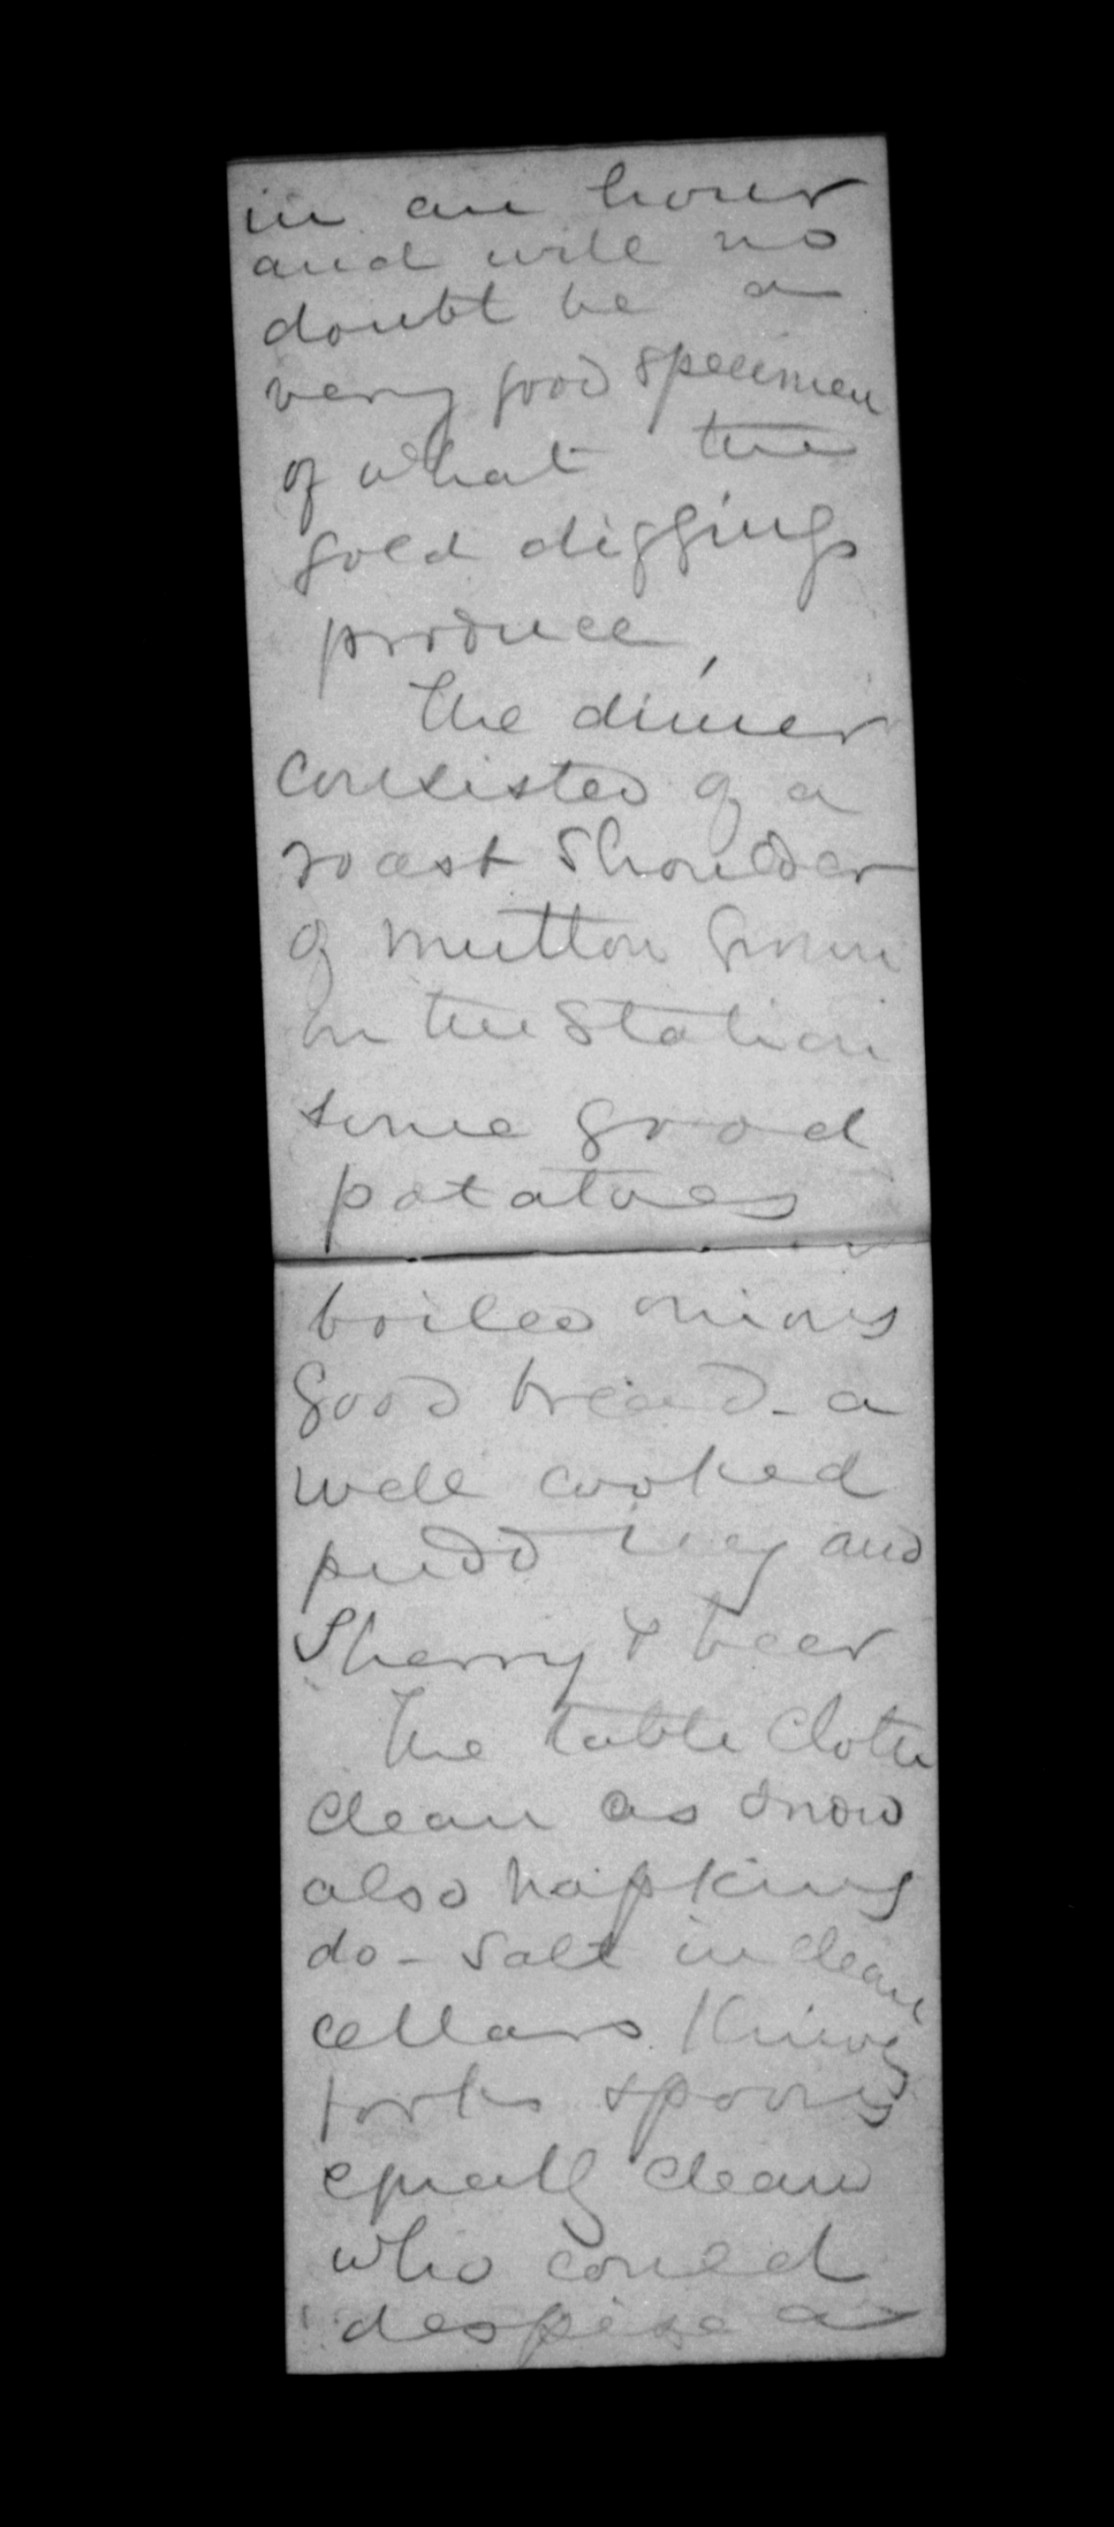 in an hour
and will no
doubt be a
very good specimen
of what the
gold diggings
produce,
The dinner
consisted of a
roast Shoulder
of mutton grown
on the Station
some good
potatoes
boiled onions
good bread - a
well cooked
pudding and
Sherry & beer
The table Cloth
clean as snow
also napkins
do - Salt in clean
cellars Knives
forks spoons
equally clean
who could
despise a